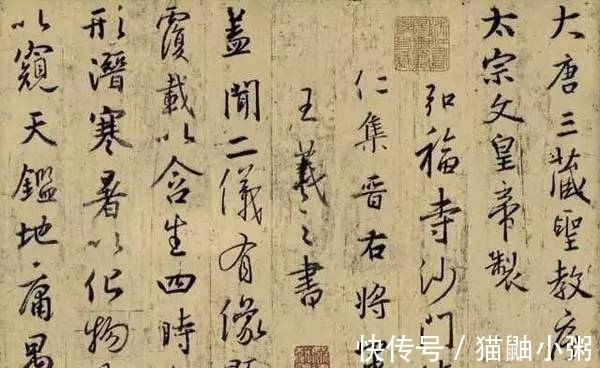 大唐三藏聖教序
太宗文皇帝製
弘福寺沙門
仁集晉右將
王羲之書
蓋聞二儀有像
覆載以含生四時
形潛寒暑以化物
以窺天鑑地庸愚
快传号 / 猫鼬小粥